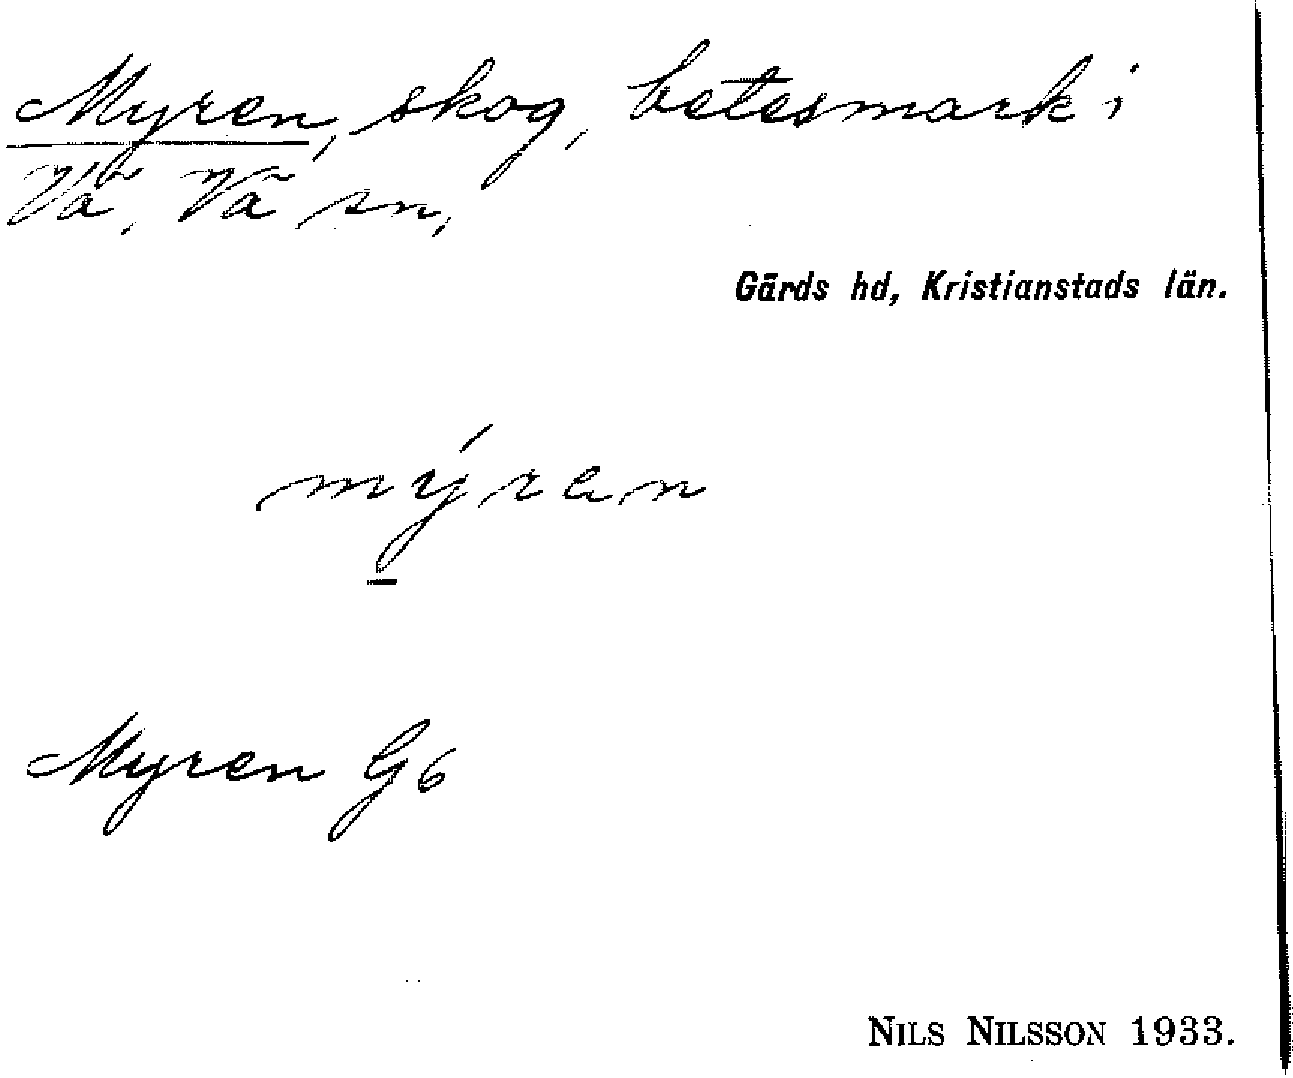 Myren, skog, betesmark i
Vä, Vä sn,
Gärds hd, Kristianstads län.
mýren
Myren G6
NILS NILSSON 1933.